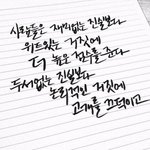 사람들은 재미없는 진실보다
위트있는 거짓에
더 높은 점수를 준다
두서없는 진실보다
논리적인 거짓에
고개를 끄덕이고